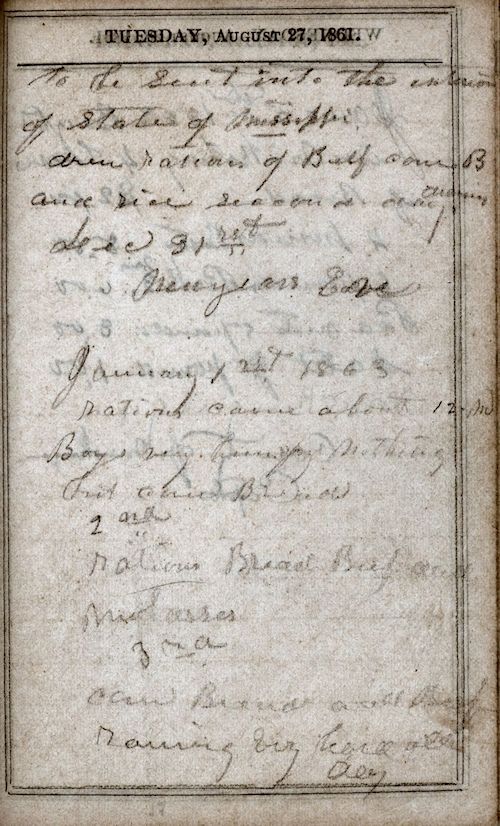 TUESDAY, AUGUST 27, 1861.
to be sent into the interior
of State of Mississippi
drew rations of Beff corn B
and rice second day
Dec 31st
Newyears Eve
January 1st 1863
rations came about 12 M
Boys very hungry Nothing
but corn Bread
2nd
rations Bread Beef and
Molasses
3rd
corn Bread and Beef
raining very hard all
day